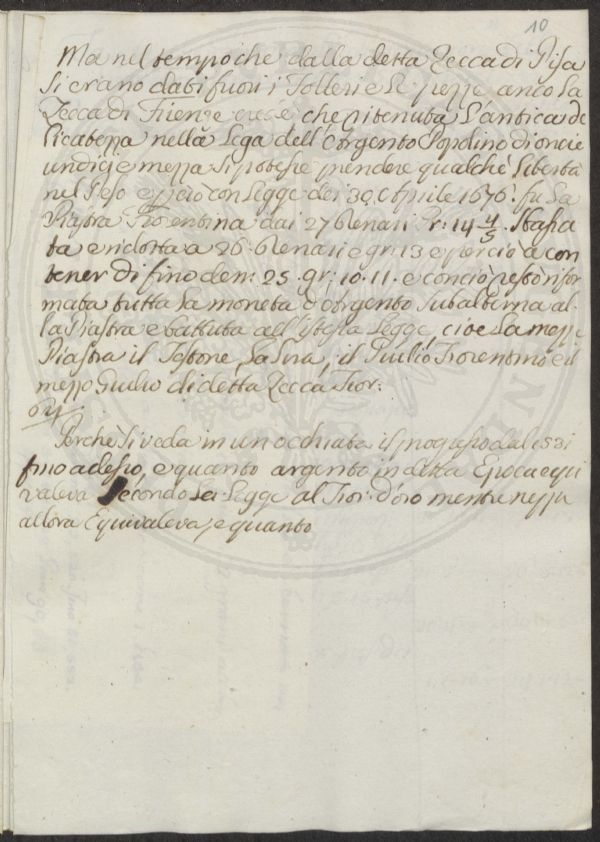 10
Ma nel tempo che dalla detta Zecca di Pisa
si erano dati fuori i Tolleri e le pezze anco la
Zecca di Firenze che ritenuta l'antica de
licatezza nella Lega dell'Argento Popolino di oncie
undici e mezza si potesse prendere qualche libertà
nel Peso e perciò con Legge dei 30. Aprile 1676. fu la
Piastra Fiorentina dai 27 Denari Gr: 14 4/5
ta e ridotta a 26. Denari e gr: 13 e perciò a con
tener di fino den: 25. gr: 10. 11. e con ciò restò rifor
mata tutta la moneta d'Argento subalterna al
la Piastra e battuta all'istessa Legge, cioè la mezza
Piastra il Testone, la Lira, il Giulio Fiorentino e il
mezzo Giulio di detta Zecca Fior:
Perchè si veda in un occhiata il progresso dal
fino adesso, e quanto argento in detta Epoca equi
valeva secondo la Legge al Fior: d'oro mentre
allora Equivaleva, e quanto